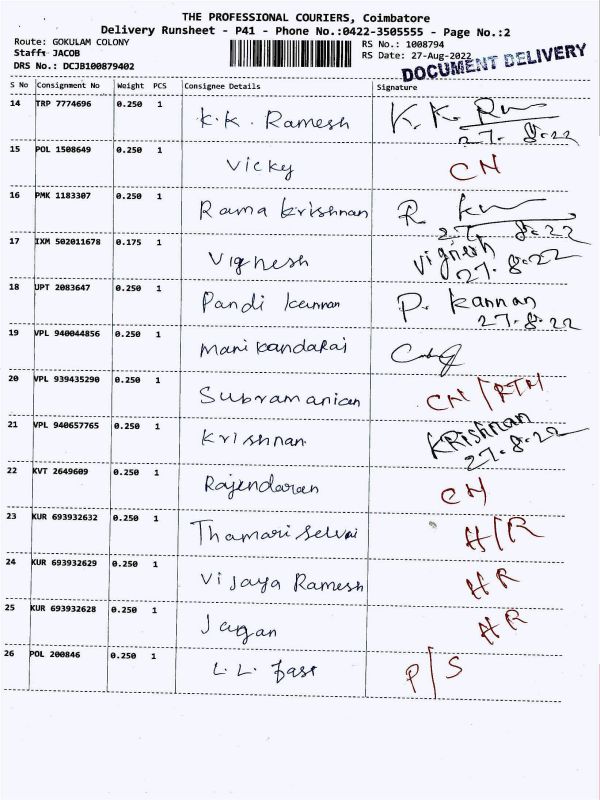 THE PROFESSIONAL COURIERS, Coimbatore
Delivery Runsheet - P41 - Phone No.:0422-3505555 - Page No.:2
Route: GOKULAM COLONY RS No.: 1008794
Staff: JACOB RS Date: 27-Aug-2022
DRS No.: DCJB100879402 DOCUMENT DELIVERY
S No Consignment No Weight PCS Consignee Details Signature
14 TRP 7774696 0.250 1 K.K. Ramesh K.K.
27.8.22
15 POL 1508649 0.250 1 Vicky CN
16 PMK 1183307 0.250 1 Rama krishnan R
27 8.22
17 IXM 502011678 0.175 1 Vignesh Vignesh
27.8.22
18 UPT 2083647 0.250 1 Pandi kannan P. kannan
27.8.22
19 VPL 940044856 0.250 1
20 VPL 939435290 0.250 1 Subramanian CN/RTN
21 VPL 940657765 0.250 1 Krishnan KRishnan
27.8.22
22 KVT 2649609 0.250 1 Rajendaran CN
23 KUR 693932632 0.250 1 Thamari selvai H/R
24 KUR 693932629 0.250 1 Vijaya Ramesh HR
25 KUR 693932628 0.250 1 Jagan HR
26 POL 200846 0.250 1 L.L. fast P/S